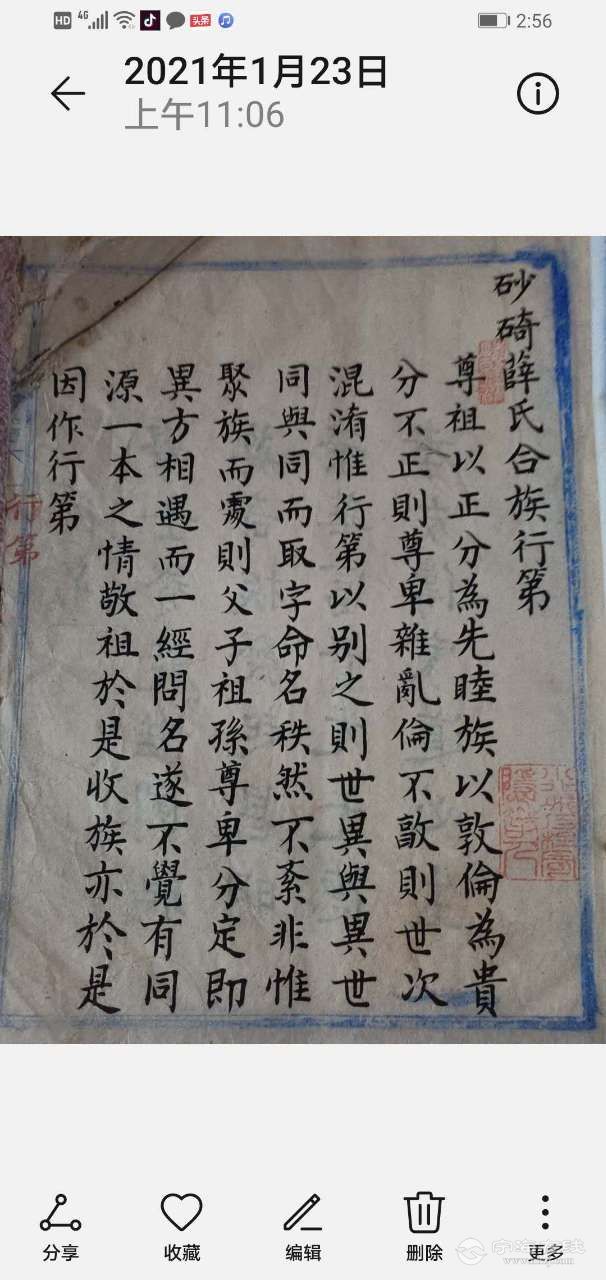 HD 4G 头条 2:56
2021年1月23日
上午11:06
砂碕薛氏合族行第
尊祖以正分為先睦族以敦倫為貴
分不正則尊卑雜亂倫不敦則世次
混淆惟行第以别之則世異與異世
同與同而取字命名秩然不紊非惟
聚族而處則父子祖孫尊卑分定即
異方相遇而一經問名遂不覺有同
源一本之情敬祖於是收族亦於是
因作行第
行第
分享 收藏 编辑 删除 更多
宁海在线